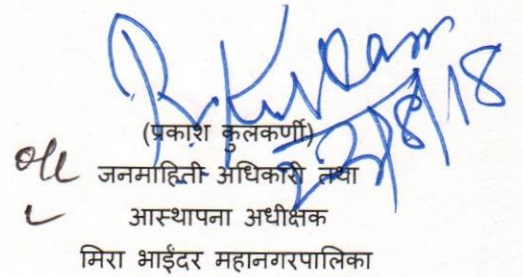 (प्रकाश कुलकर्णी)
जनमाहिती अधिकारी तथा
आस्थापना अधीक्षक
मिरा भाईंदर महानगरपालिका